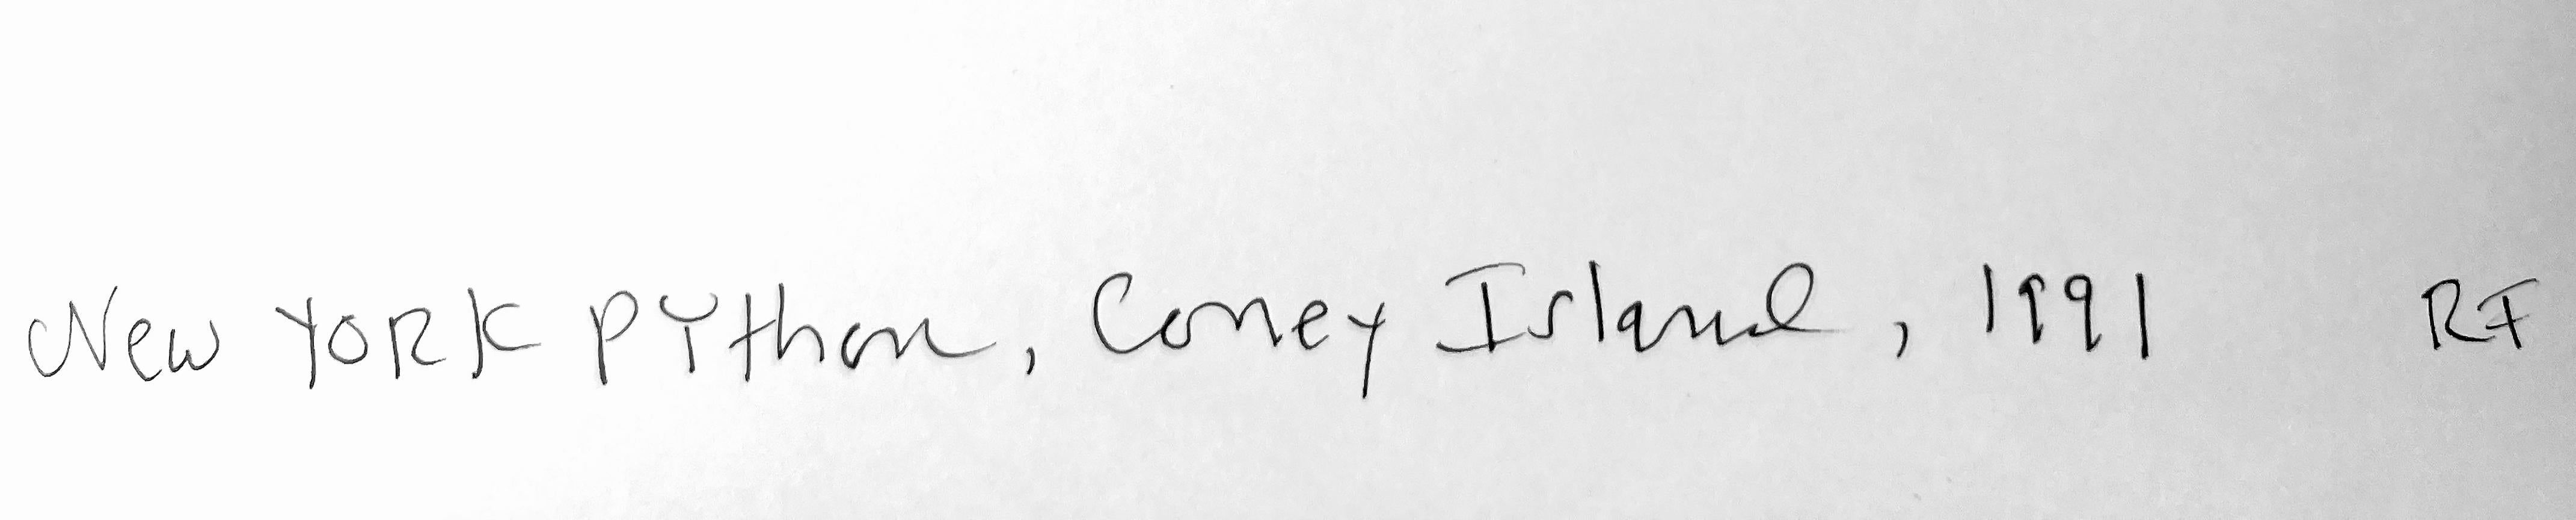 New YORK PYthon, Coney Island, 1991 RF